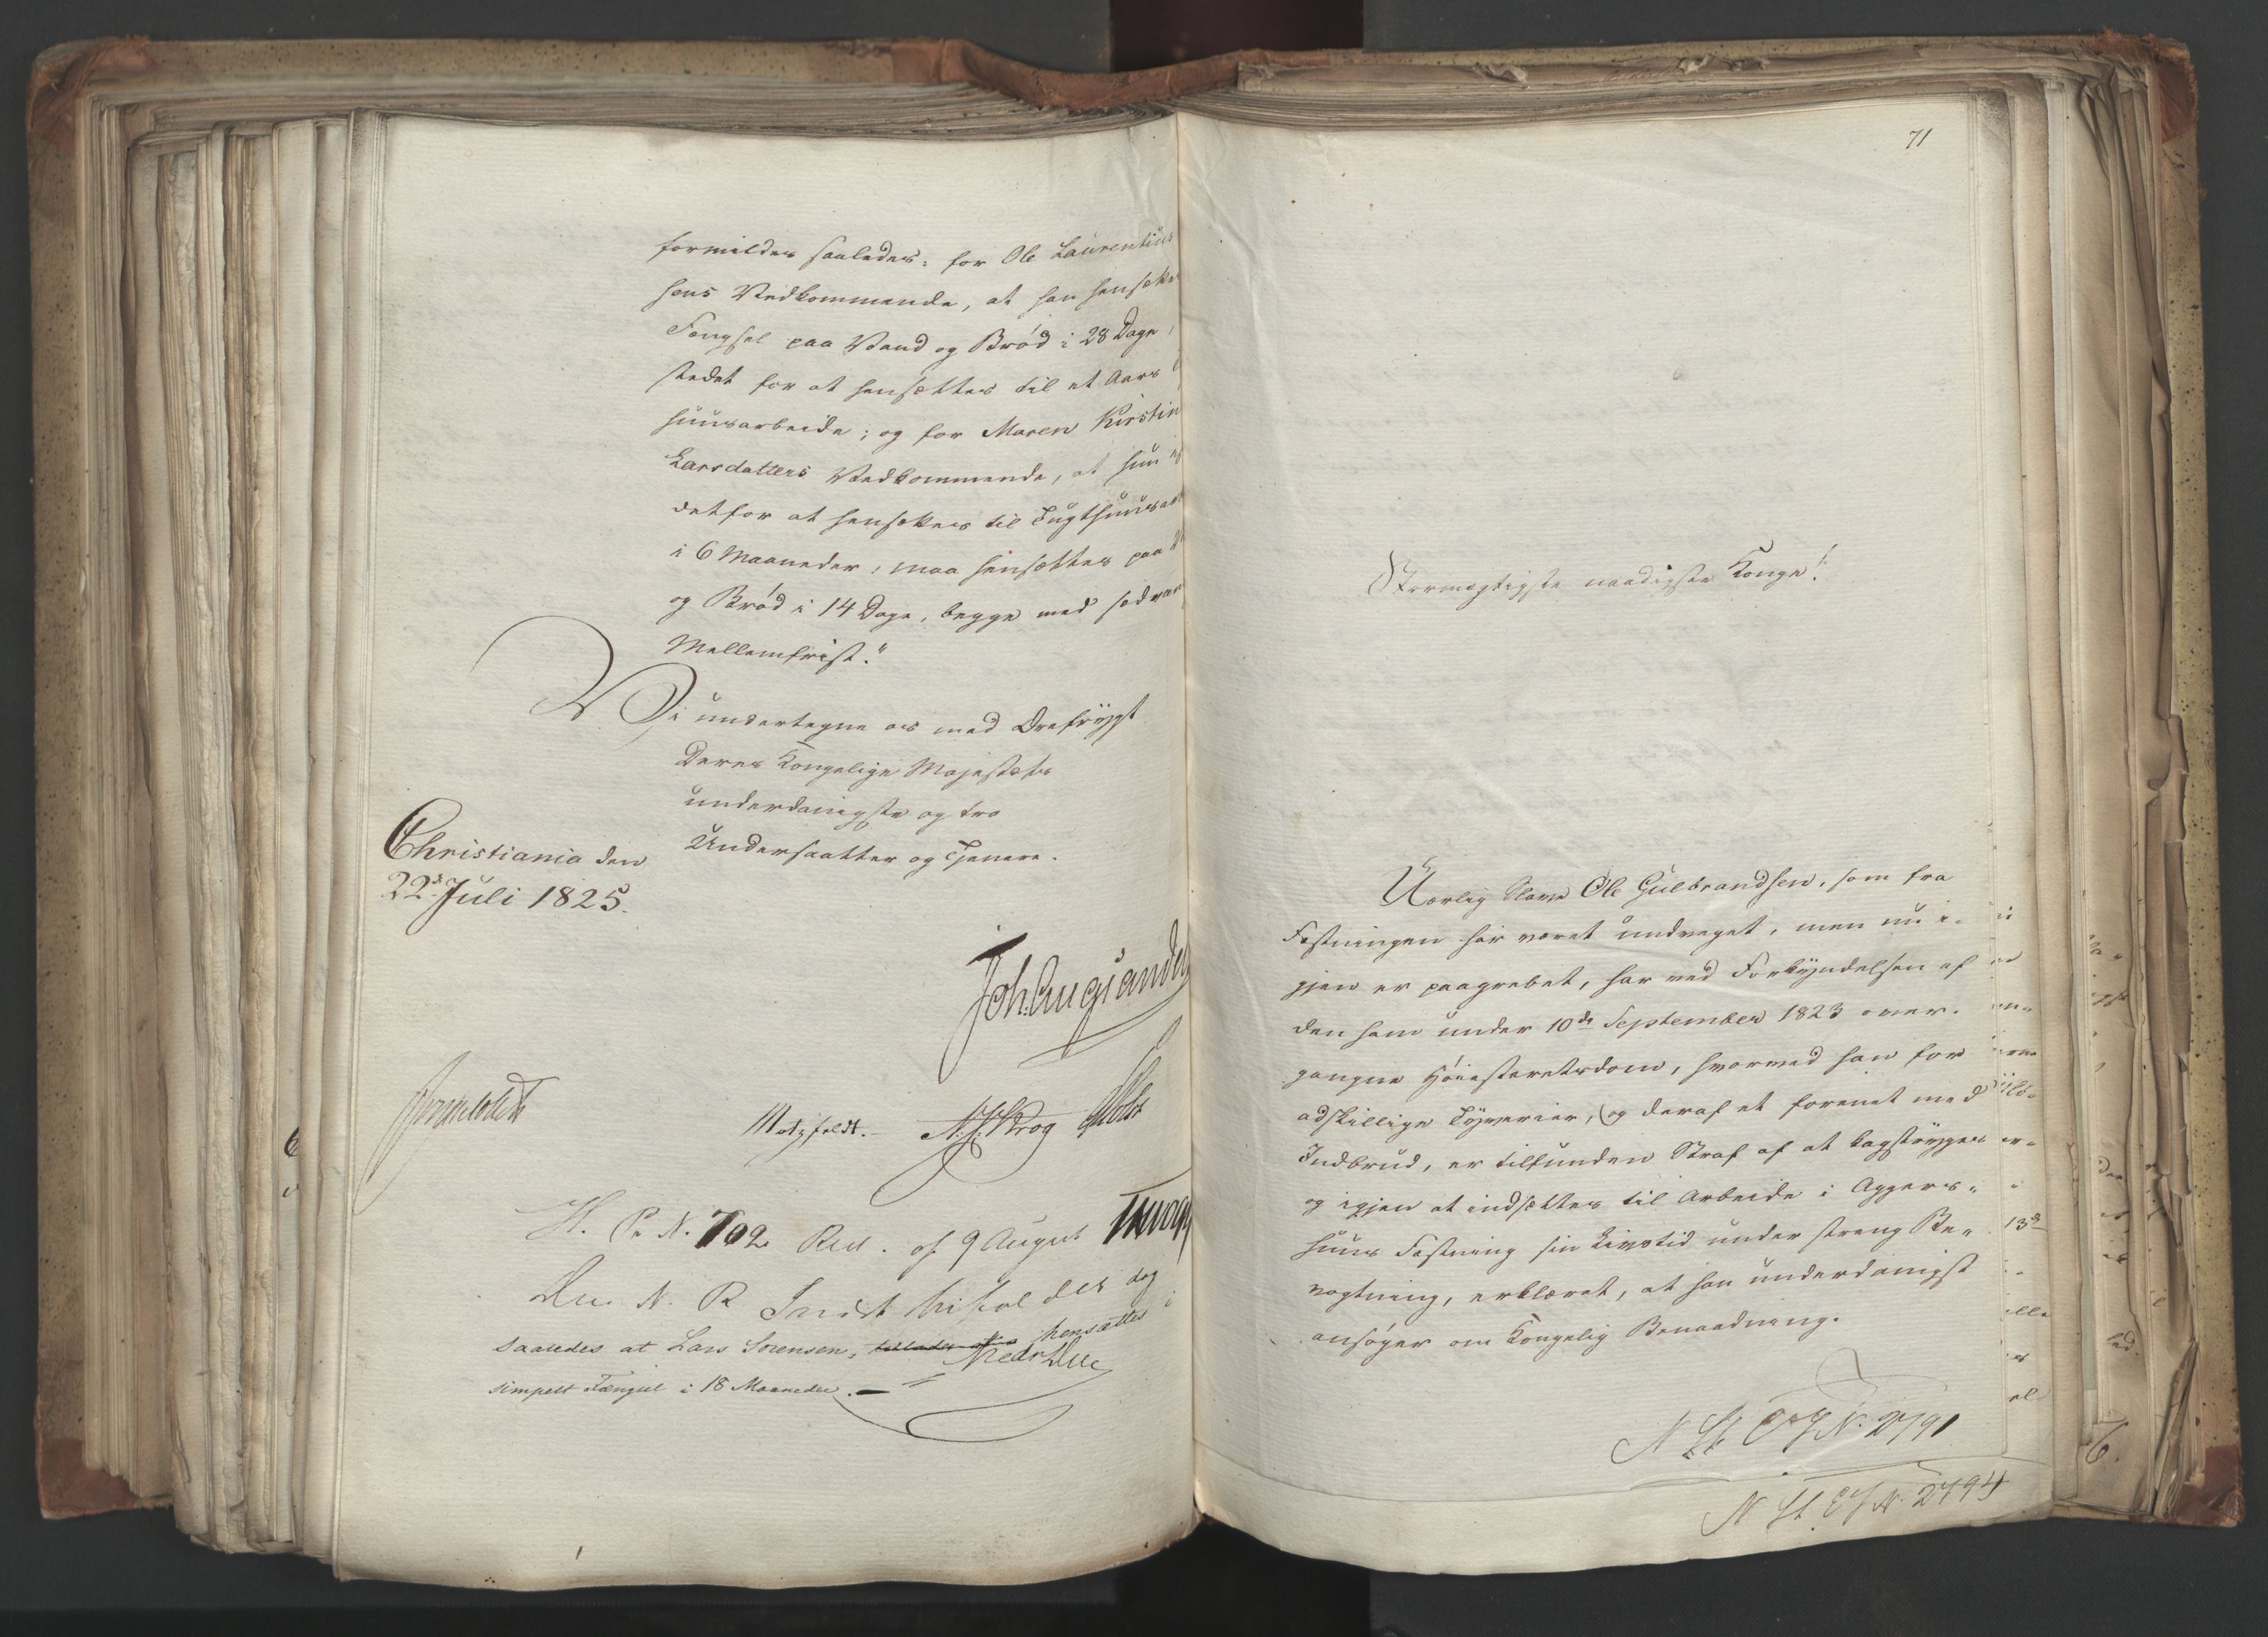 formildes saaledes: for Ole Laurentius
sens Vedkommende, at han hensættes
Fængsel paa Vand og Brød i 28 Dage,
stedet for at hensættes til et Aars
huusarbeide; og for Maren Kirstin
Larsdatters Vedkommende, at hun i
detfor at hensættes til Tugthuusar
i 6 Maaneder, maa hensættes paa
og Brød i 14 Dage, begge med sædvan
Mellemfrist."
Vi undertegne os med Ærefrygt
Deres Kongelige Majestæts
underdanigste og tro
Undersaatter og Tjenere.
Christiania den
22d Juli 1825.
Joh. Aug. Sandels
Motzfeldt. N. J. Krog
H. P. N. 702. Res. af 9 August
Den N. R. Indst. bifaldes dog
saaledes at Lars Sørensen, hensættes i
simpelt Fængsel i 18 Maaneder.
Fredr Due
71
Stormægtigste naadigste Konge!
Uærlig Slave Ole Gulbrandsen, som fra
Fæstningen har været undveget, men nu i-
gjen er paagrebet, har ved Forkyndelsen af
den ham under 10de September 1823 over-
gangne Høiesteretsdom, hvorved han for
adskillige Tyverier, og deraf et forenet med
Indbrud, er tilfunden Straf af at kagstryges
og igjen at indsættes til Arbeide i Aggers-
huus Fæstning sin Livstid under streng Be-
vogtning, erklæret, at han underdanigst
ansøger om Kongelig Benaadning.
13de
N St E J N. 2791
N St. E J N. 2794